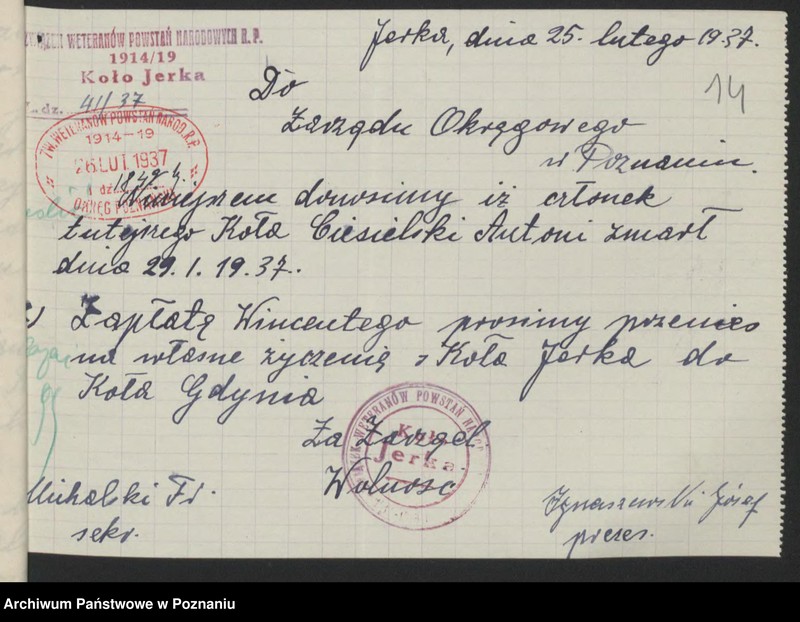 ZWIĄZEK WETERANÓW POWSTAŃ NARODOWYCH R. P.
1914/19
Koło Jerka
L. dz. 41/37
Jerka, dnia 25. lutego 1937.
14
Do
Zarządu Okręgowego
w Poznaniu.
ZW. WETERANÓW POWSTAŃ NAROD. R.P.
1914-19
26 LUT. 1937
OKRĘG POZNAŃSKI
Niniejszem donosimy iż członek
tutejszego Koła Ciesielski Antoni zmarł
dnia 29.1.1937.
Zapłatę Wincentego prosimy przenies
na własne życzenię z Koła Jerka do
Koła Gdynia
Za Zarząd
Wolność
ZWIĄZEK WETERANÓW POWSTAŃ NAROD.
Koło
Jerka.
Michalski Fr.
sekr.
Ignaszewski Józef
prezes.
Archiwum Państwowe w Poznaniu